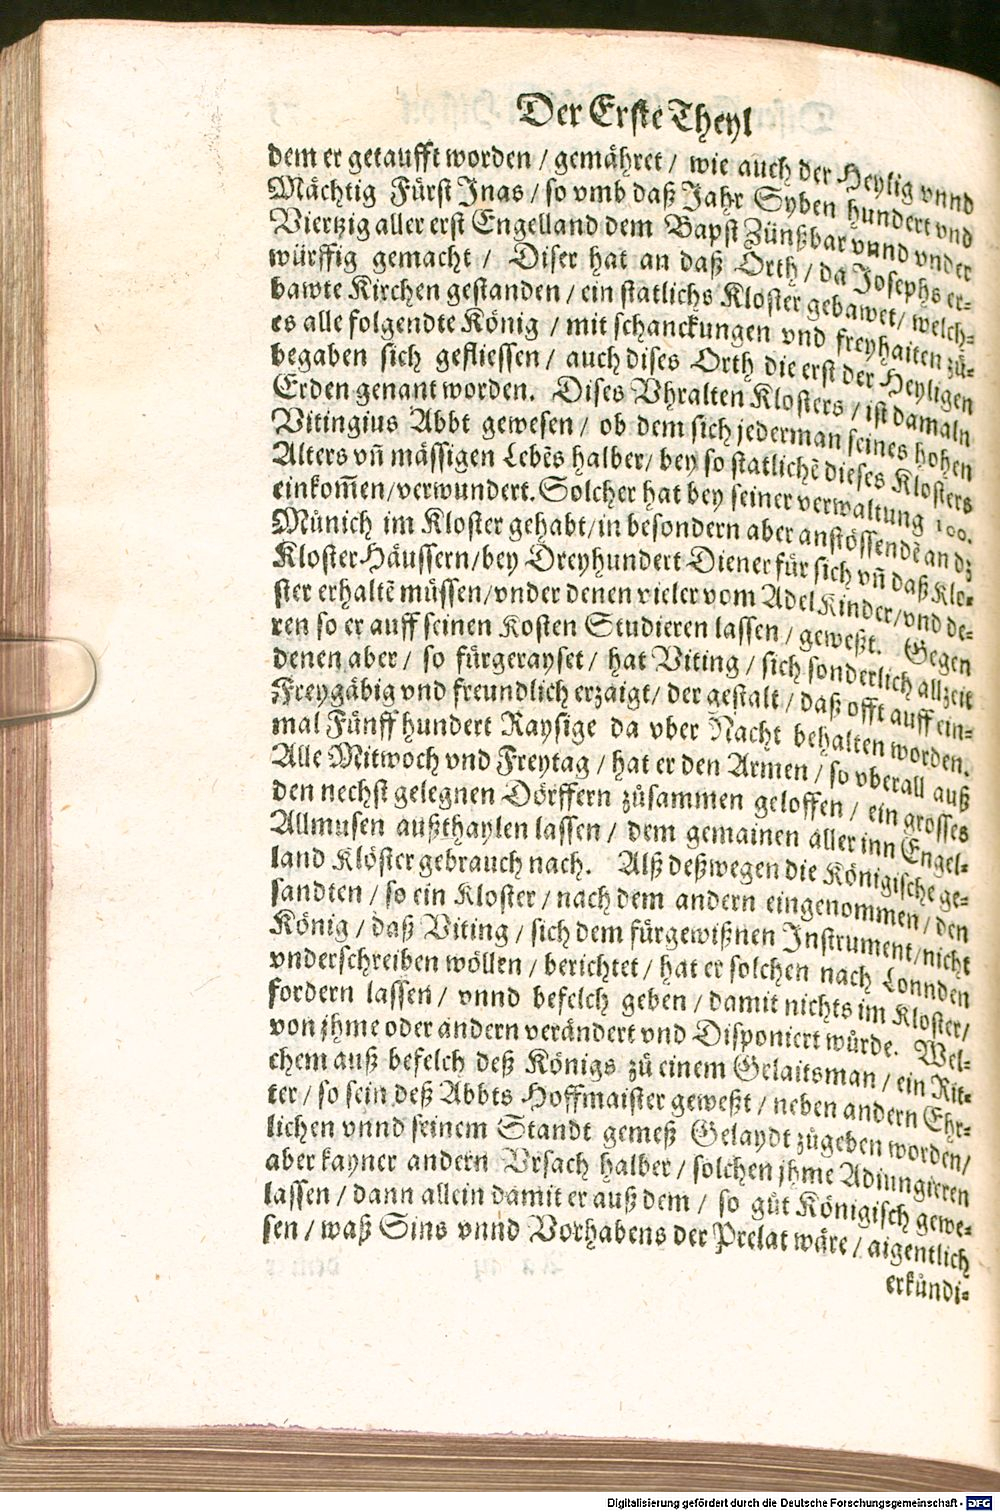 Der Erste Theyl
dem er getaufft worden / gemähret / wie auch der Heylig vnnd
Mächtig Fürst Inas / so vmb daß Jahr Syben hundert vnd
Viertzig aller erst Engelland dem Bapst Zünßbar vnnd vnder
würffig gemacht / Diser hat an daß Orth / da Josephs er-
bawte Kirchen gestanden / ein statlichs Kloster gebawet / welch-
es alle folgendte König / mit schanckungen vnd freyhaiten zů-
begaben sich gefliessen / auch dises Orth die erst der Heyligen
Erden genant worden. Dises Vhralten Klosters / ist damaln
Vitingius Abbt gewesen / ob dem sich jederman seines hohen
Alters vn̄ mässigen Lebēs halber / bey so statlichē dieses Klosters
einkom̄en / verwundert. Solcher hat bey seiner verwaltung 100.
Münich im Kloster gehabt / in besondern aber anstössendē an dz
Kloster Häussern / bey Dreyhundert Diener für sich vn̄ daß Klo-
ster erhaltē müssen / vnder denen vieler vom Adel Kinder / vnd de-
ren so er auff seinen Kosten Studieren lassen / geweßt. Gegen
denen aber / so fürgerayset / hat Viting / sich sonderlich allzeit
Freygäbig vnd freundlich erzaigt / der gestalt / daß offt auff ein-
mal Fünff hundert Raysige da vber Nacht behalten worden.
Alle Mitwoch vnd Freytag / hat er den Armen / so vberall auß
den nechst gelegnen Dörffern zůsammen geloffen / ein grosses
Allmusen außthaylen lassen / dem gemainen aller inn Engel-
land Klöster gebrauch nach. Alß deßwegen die Königische ge-
sandten / so ein Kloster / nach dem andern eingenommen / den
König / daß Viting / sich dem fürgewißnen Instrument / nicht
vnderschreiben wöllen / berichtet / hat er solchen nach Lonnden
fordern lassen / vnnd befelch geben / damit nichts im Kloster /
von jhme oder andern verändert vnd Disponiert würde. Wel-
chem auß befelch deß Königs zů einem Gelaitsman / ein Rit-
ter / so sein deß Abbts Hoffmaister geweßt / neben andern Ehr-
lichen vnnd seinem Standt gemeß Gelaydt zůgeben worden /
aber kayner andern Vrsach halber / solchen jhme Adiungieren
lassen / dann allein damit er auß dem / so gůt Königisch gewe-
sen / waß Sins vnnd Vorhabens der Prelat wäre / aigentlich
erkündi-
Digitalisierung gefördert durch die Deutsche Forschungsgemeinschaft - DFG